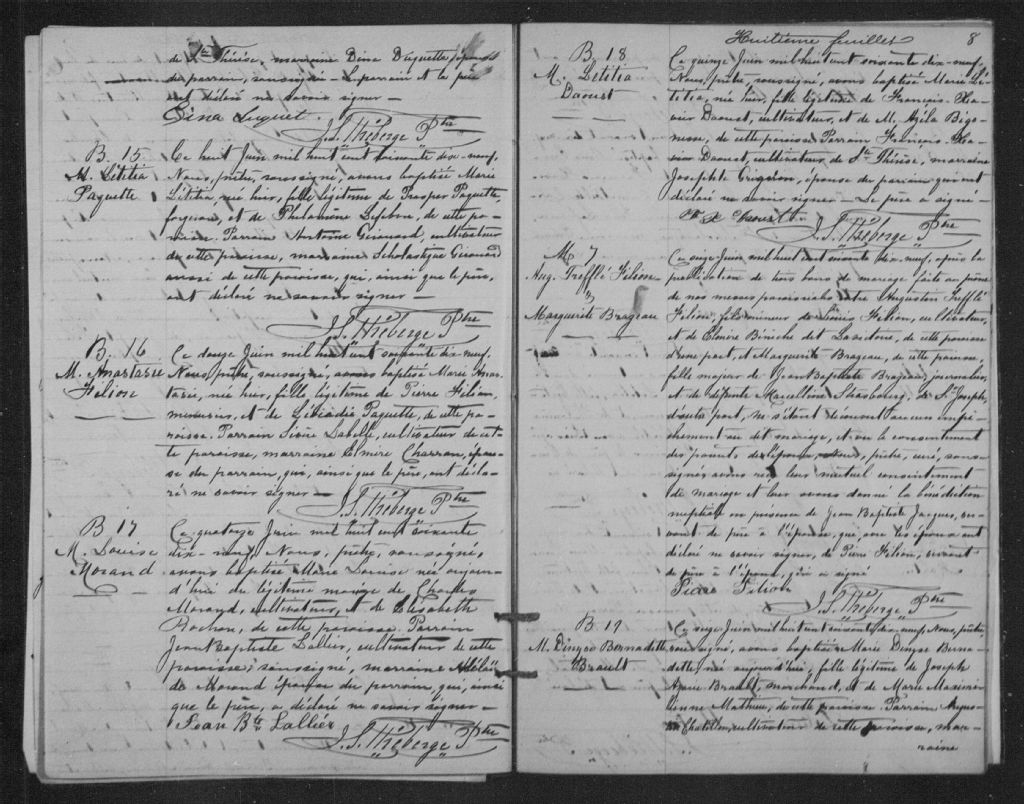 de Ste Thérèse, marraine Dina Duquette, épouse
du parrain, soussignée. Le parrain et le père
ont déclaré ne savoir signer —
J. S. Théberge Ptre
B. 15
M. Létitia
Paquette
Ce huit Juin mil huit cent soixante dix-neuf,
Nous, prêtre, soussigné, avons baptisé Marie
Létitia, née hier, fille légitime de Prosper Paquette,
forgeron, et de Philomène Lefebvre, de cette pa-
roisse. Parrain Antoine Girouard, cultivateur
de cette paroisse, marraine Scholastique Girouard
aussi de cette paroisse, qui, ainsi que le père,
ont déclaré ne savoir signer —
J. S. Théberge Ptre
B. 16
M. Anastasie
Filion
Ce douze Juin mil huit cent soixante dix-neuf,
Nous, prêtre, soussigné, avons baptisé Marie Anas-
tasie, née hier, fille légitime de Pierre Filion,
menuisier, et de Léocadie Paquette, de cette pa-
roisse. Parrain Isaïe Labelle, cultivateur de cet-
te paroisse, marraine Elmire Charron, épou-
se du parrain, qui, ainsi que le père, ont décla-
ré ne savoir signer —
J. S. Théberge Ptre
B 17
M. Louise
Morand
Ce quatorze Juin mil huit cent soixante
dix-neuf, Nous, prêtre, soussigné,
avons baptisé Marie Louise née aujour-
d'hui du légitime mariage de Charles
Morand, cultivateur, et de Elisabeth
Rochon, de cette paroisse. Parrain
Jean Baptiste Lallier, cultivateur de cette
paroisse, soussigné, marraine Adélaï-
de Morand épouse du parrain, qui, ainsi
que le père, a déclaré ne savoir signer —
Jean Bte Lallier
J. S. Théberge Ptre
Huitième feuillet 8
B 18
M. Létitia
Daoust
Ce quinze Juin mil huit cent soixante dix-neuf,
Nous, prêtre, soussigné, avons baptisé Marie Lé-
titia, née hier, fille légitime de François-Xa-
vier Daoust, cultivateur, et de M. Azéla Bigo-
nesse, de cette paroisse. Parrain François-Xa-
vier Daoust, cultivateur de Ste Thérèse, marraine
Josephte Grignon, épouse du parrain qui ont
déclaré ne savoir signer — Le père a signé —
F X Daoust
J. S. Théberge Ptre
M 7
Aug. Trefflé Filion
&
Marguerite Brazeau
Ce seize Juin mil huit cent soixante dix-neuf, après la
publication de trois bans de mariage faite au prône
de nos messes paroissiales entre Augustin Trefflé
Filion, fils mineur de Louis Filion, cultivateur,
et de Elmire Bénèche dit Lavictoire, de cette paroisse
d'une part, et Marguerite Brazeau, de cette paroisse,
fille majeure de Jean Baptiste Brazeau, journalier,
et de défunte Marcelline Strasbourg, de St Joseph,
d'autre part, ne s'étant découvert aucun empê-
chement au dit mariage, et vu le consentement
des parents de l'époux, Nous, prêtre, curé, sous-
signé, avons reçu leur mutuel consentement
de mariage et leur avons donné la bénédiction
nuptiale en présence de Jean Baptiste Jacques, ser-
vant de père à l'épouse, qui, avec les époux ont
déclaré ne savoir signer, de Pierre Filion, servant
de père à l'époux, qui a signé
Pierre Filion
J. S. Théberge Ptre
B 19
M. Denyse Bernadette
Brault
Ce seize Juin mil huit cent soixante dix-neuf, Nous, prêtre,
soussigné, avons baptisé Marie Denyse Berna-
dette, née aujourd'hui, fille légitime de Joseph
Brault, marchand, et de Marie
Mathieu, de cette paroisse. Parrain
Chatillon, cultivateur de cette paroisse, mar-
raine